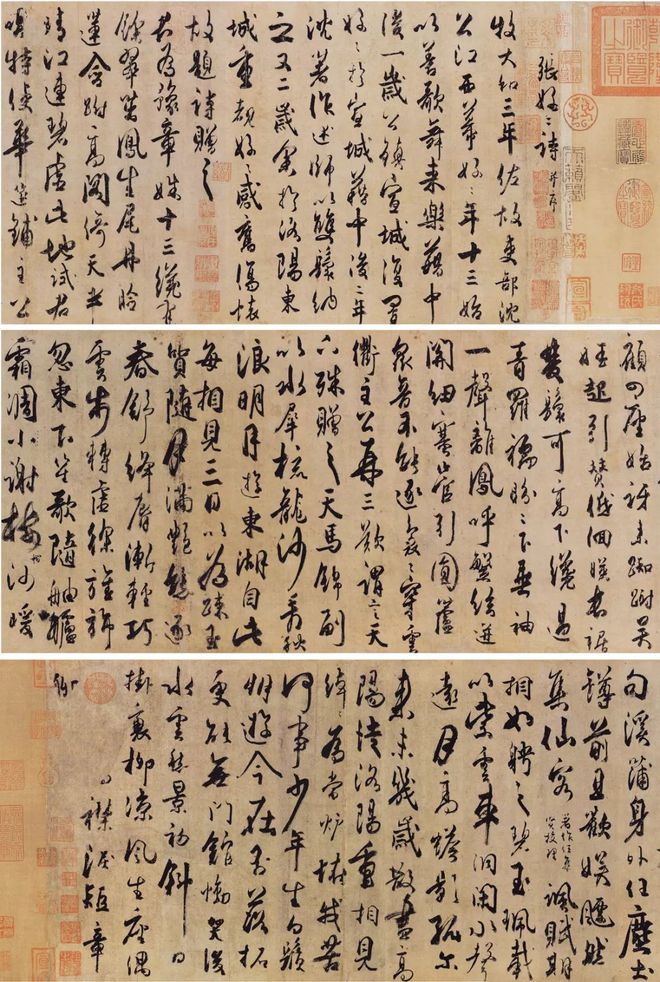 張好好詩 并序
牧大和三年佐故吏部沈
公江西幕好好年十三始
以善歌舞來樂籍中
後一歲公鎮宣城復置
好好於宣城籍中後二年
沈著作述師以雙鬟納
之又二歲余於洛陽東
城重覩好好感舊傷懷
故題詩贈之
君為豫章姝十三纔有
餘翠茁鳳生尾丹臉
蓮含跗高閣倚天半
晴江連碧虛此地試君
唱特使華筵鋪主公
顧四座始訝來踟躕吳
娃起引贊低佪暎長裾
雙鬟可高下纔過
青羅襦盼盼下垂袖
一聲離鳳呼繁弦迸
關紐塞管引圓蘆
衆音不能逐裊裊穿雲
衢主公再三歎謂言天
下殊贈之天馬錦副
以水犀梳龍沙看秋
浪明月遊東湖自此
每相見三日以為疎玉
質隨月滿艷態逐
春舒絳脣漸輕巧
雲步轉虛徐旌旆
忽東下笙歌隨舳艫
霜凋小謝樹沙暖
句溪蒲身外任塵土
罇前且歡娛飄然
集仙客 著作任集賢校理 諷賦期
相如聘之碧玉珮載
以紫雲車洞閉水聲
遠月高蟾影孤尒
來未幾歲散盡高
陽徒洛陽重相見
綽綽為當爐怪我苦
何事少年生白鬚
朋遊今在否落拓
更能無門館慟哭後
水雲愁景初斜日
掛衰柳涼風生座隅
襟淚短章
聊